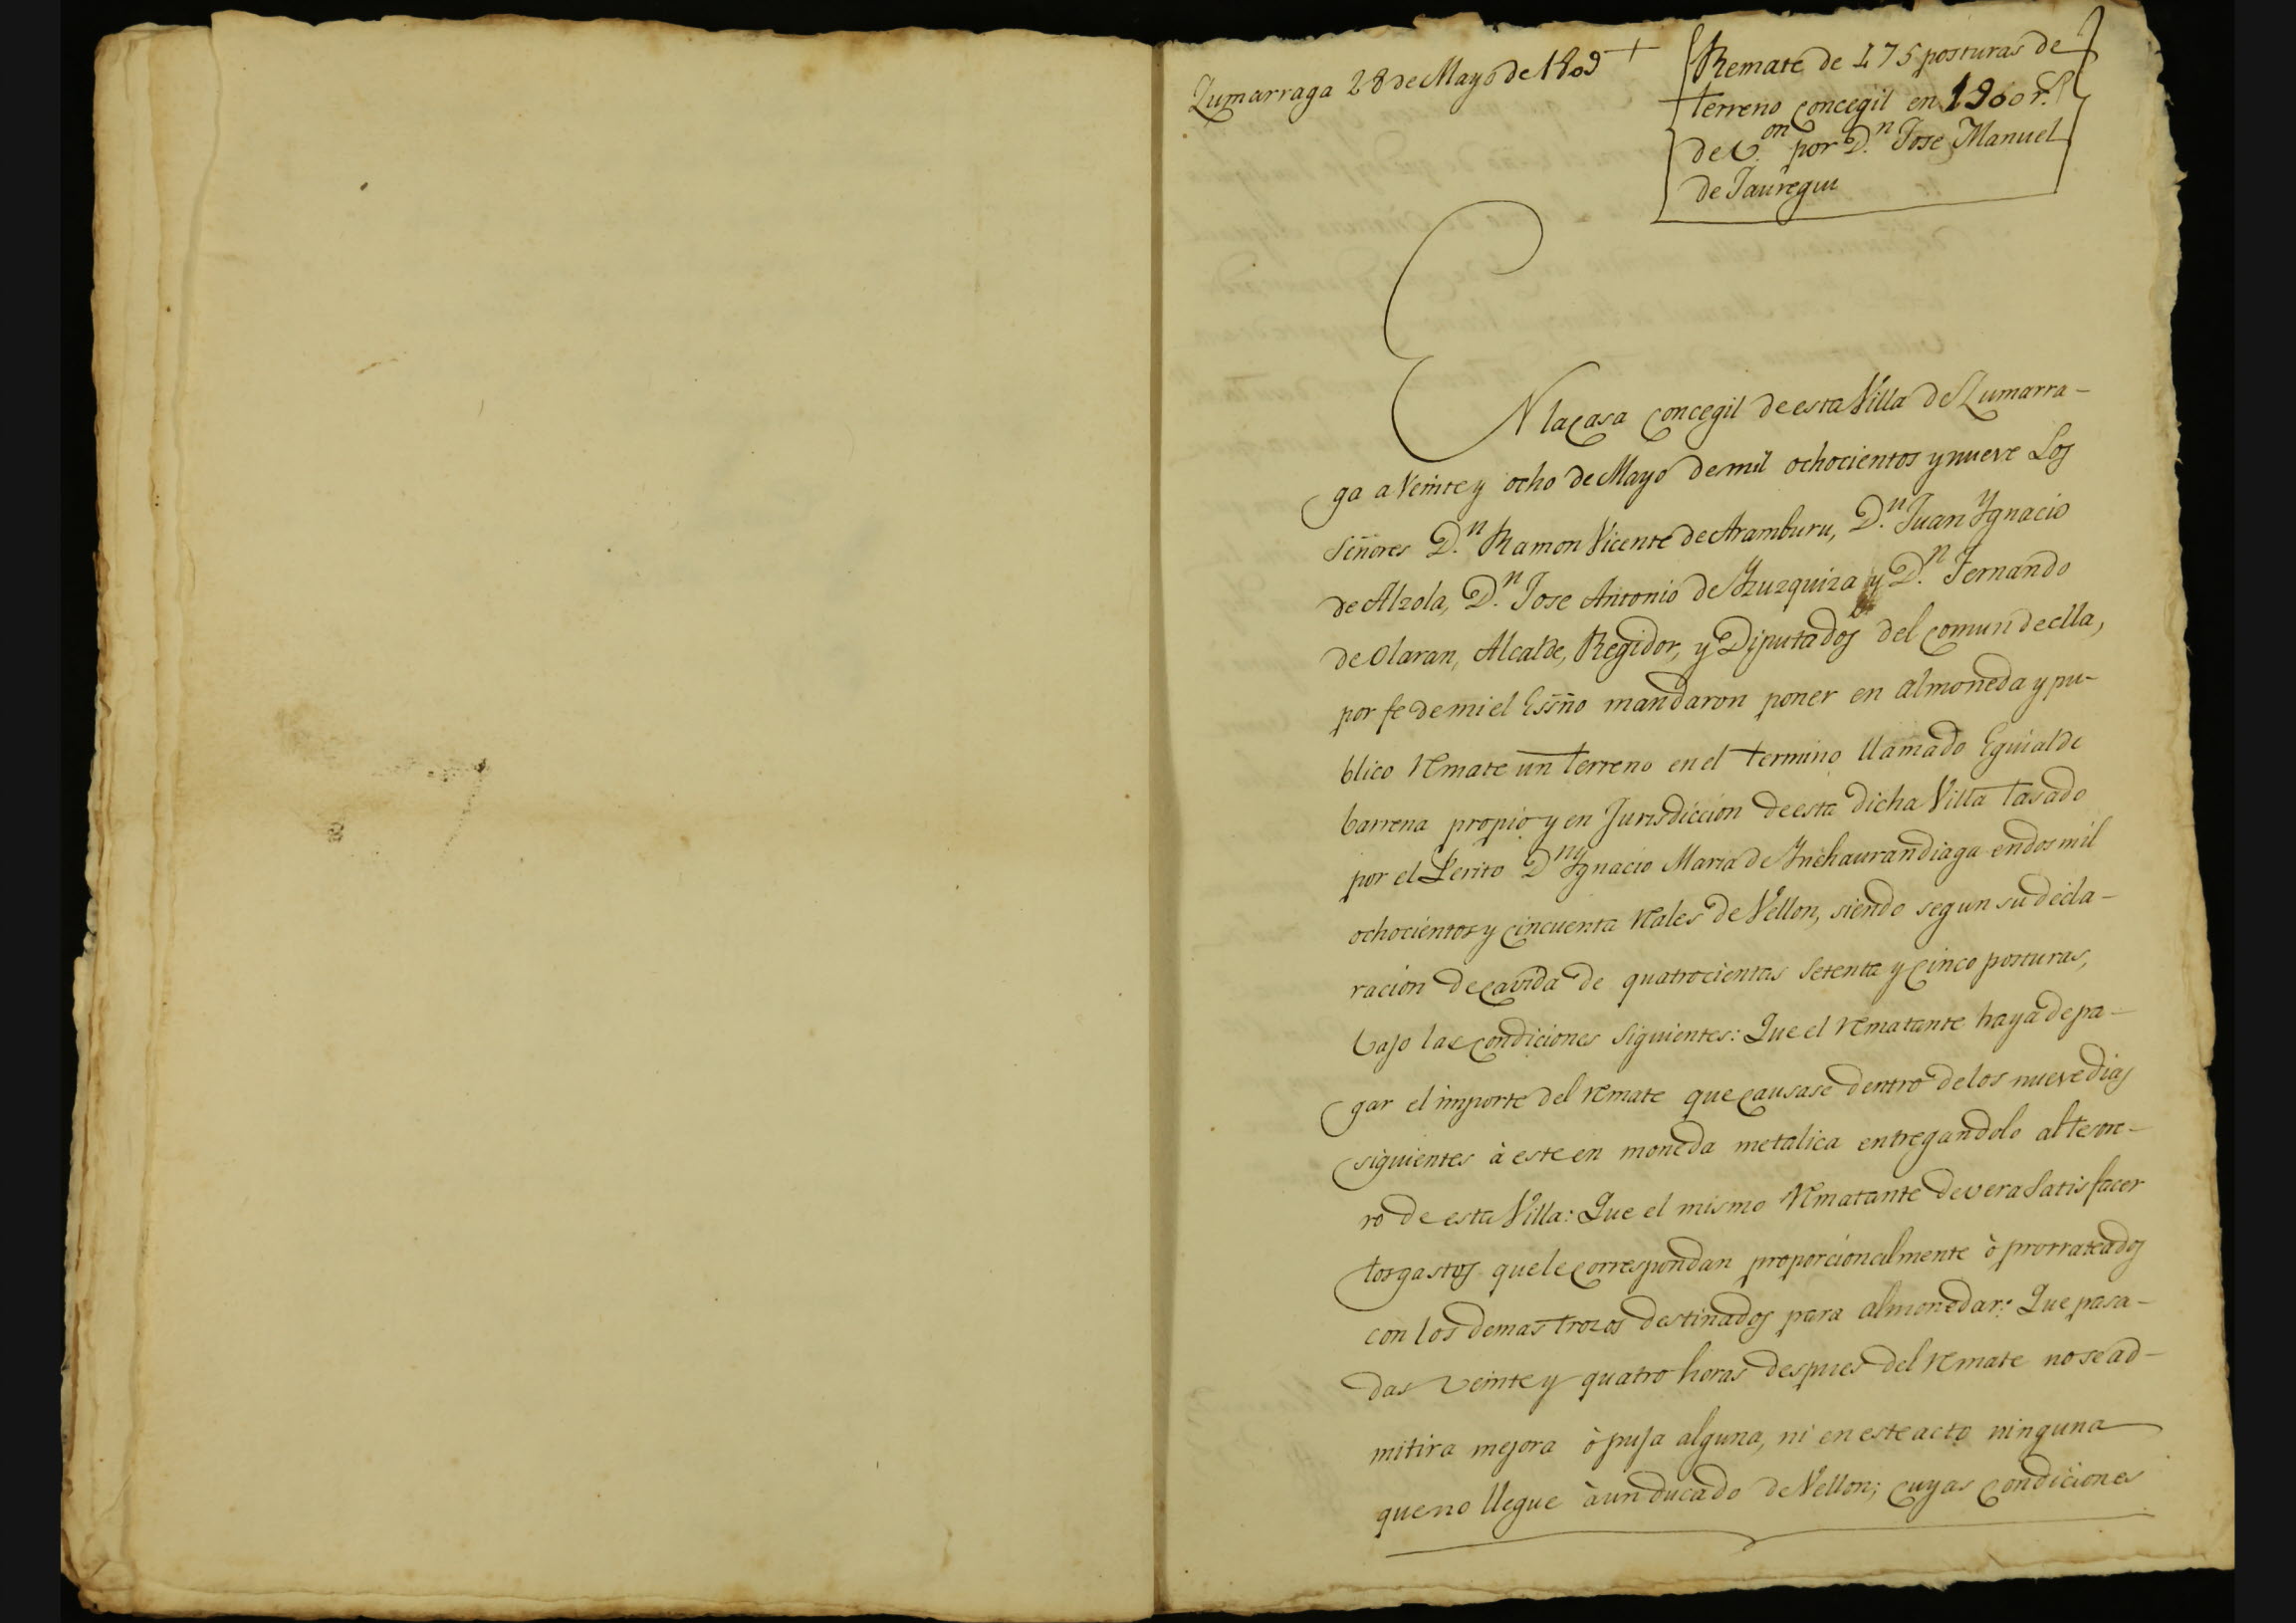 Zumarraga 28 de Mayo de 1809 +
Remate de 475 posturas de
terreno Concegil en 1960 r.s
de V.on por D.n Jose Manuel
de Jauregui
EN la Casa Concegil de esta Villa de Zumarra-
ga a Veinte y ocho de Mayo de mil ochocientos y nueve Los
Señores D.n Ramon Vicente de Aramburu, D.n Juan Ygnacio
de Alzola, D.n Jose Antonio de Yzuzquiza y D.n Fernando
de Olaran, Alcalde, Regidor, y Diputados del Comun de ella,
por fe de mi el Essño mandaron poner en almoneda y pu-
blico remate un terreno en el termino llamado Eguialde
barrena propio y en Jurisdiccion de esta dicha Villa tasado
por el Perito D.n Ygnacio Maria de Ynchaurandiaga en dos mil
ochocientos y cincuenta reales de Vellon, siendo segun su decla-
racion de Cavida de quatrocientas setenta y Cinco posturas,
bajo las Condiciones siguientes: Que el rematante haya de pa-
gar el importe del remate que Causase dentro de los nueve dias
siguientes à este en moneda metalica entregandolo al tesore-
ro de esta Villa: Que el mismo rematante devera satisfacer
los gastos que le Correspondan proporcionalmente ò prorrateados
con los demas trozos destinados para almonedar: Que pasa-
das veinte y quatro horas despues del remate no se ad-
mitira mejora ò puja alguna, ni en este acto ninguna
que no llegue à un ducado de Vellon; Cuyas Condiciones